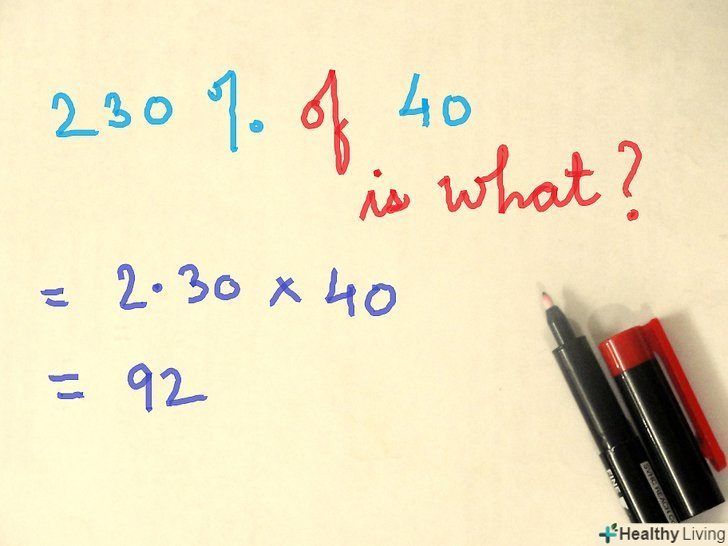 230 % of 40
is what?
= 2.30 x 40
= 92
FINE
Healthy Living